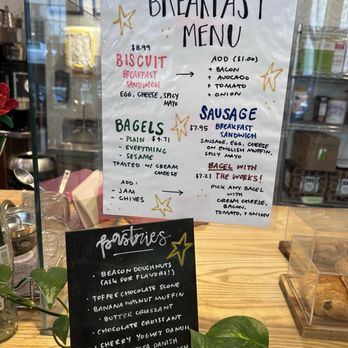 BREAKFAST
MENU
$8.99
BISCUIT
BREAKFAST
SANDWICH
EGG, CHEESE, SPICY
MAYO
ADD ($1.00)
+ BACON
+ AVOCADO
+ TOMATO
+ ONION
BAGELS
- PLAIN $4.71
- EVERYTHING
- SESAME
TOASTED W/ CREAM
CHEESE
ADD:
- JAM
- CHIVES
SAUSAGE
$7.95 BREAKFAST
SANDWICH
SAUSAGE, EGG, CHEESE
ON ENGLISH MUFFIN,
SPICY MAYO
BAGEL WITH
$7.21 THE WORKS!
PICK ANY BAGEL
WITH
CREAM CHEESE,
BACON,
TOMATO, + ONION
pastries
• BEACON DOUGHNUTS
(ASK FOR FLAVORS!)
• TOFFEE CHOCOLATE SCONE
• BANANA WALNUT MUFFIN
• BUTTER CROISSANT
• CHOCOLATE CROISSANT
• CHERRY YOGURT DANISH
DANISH